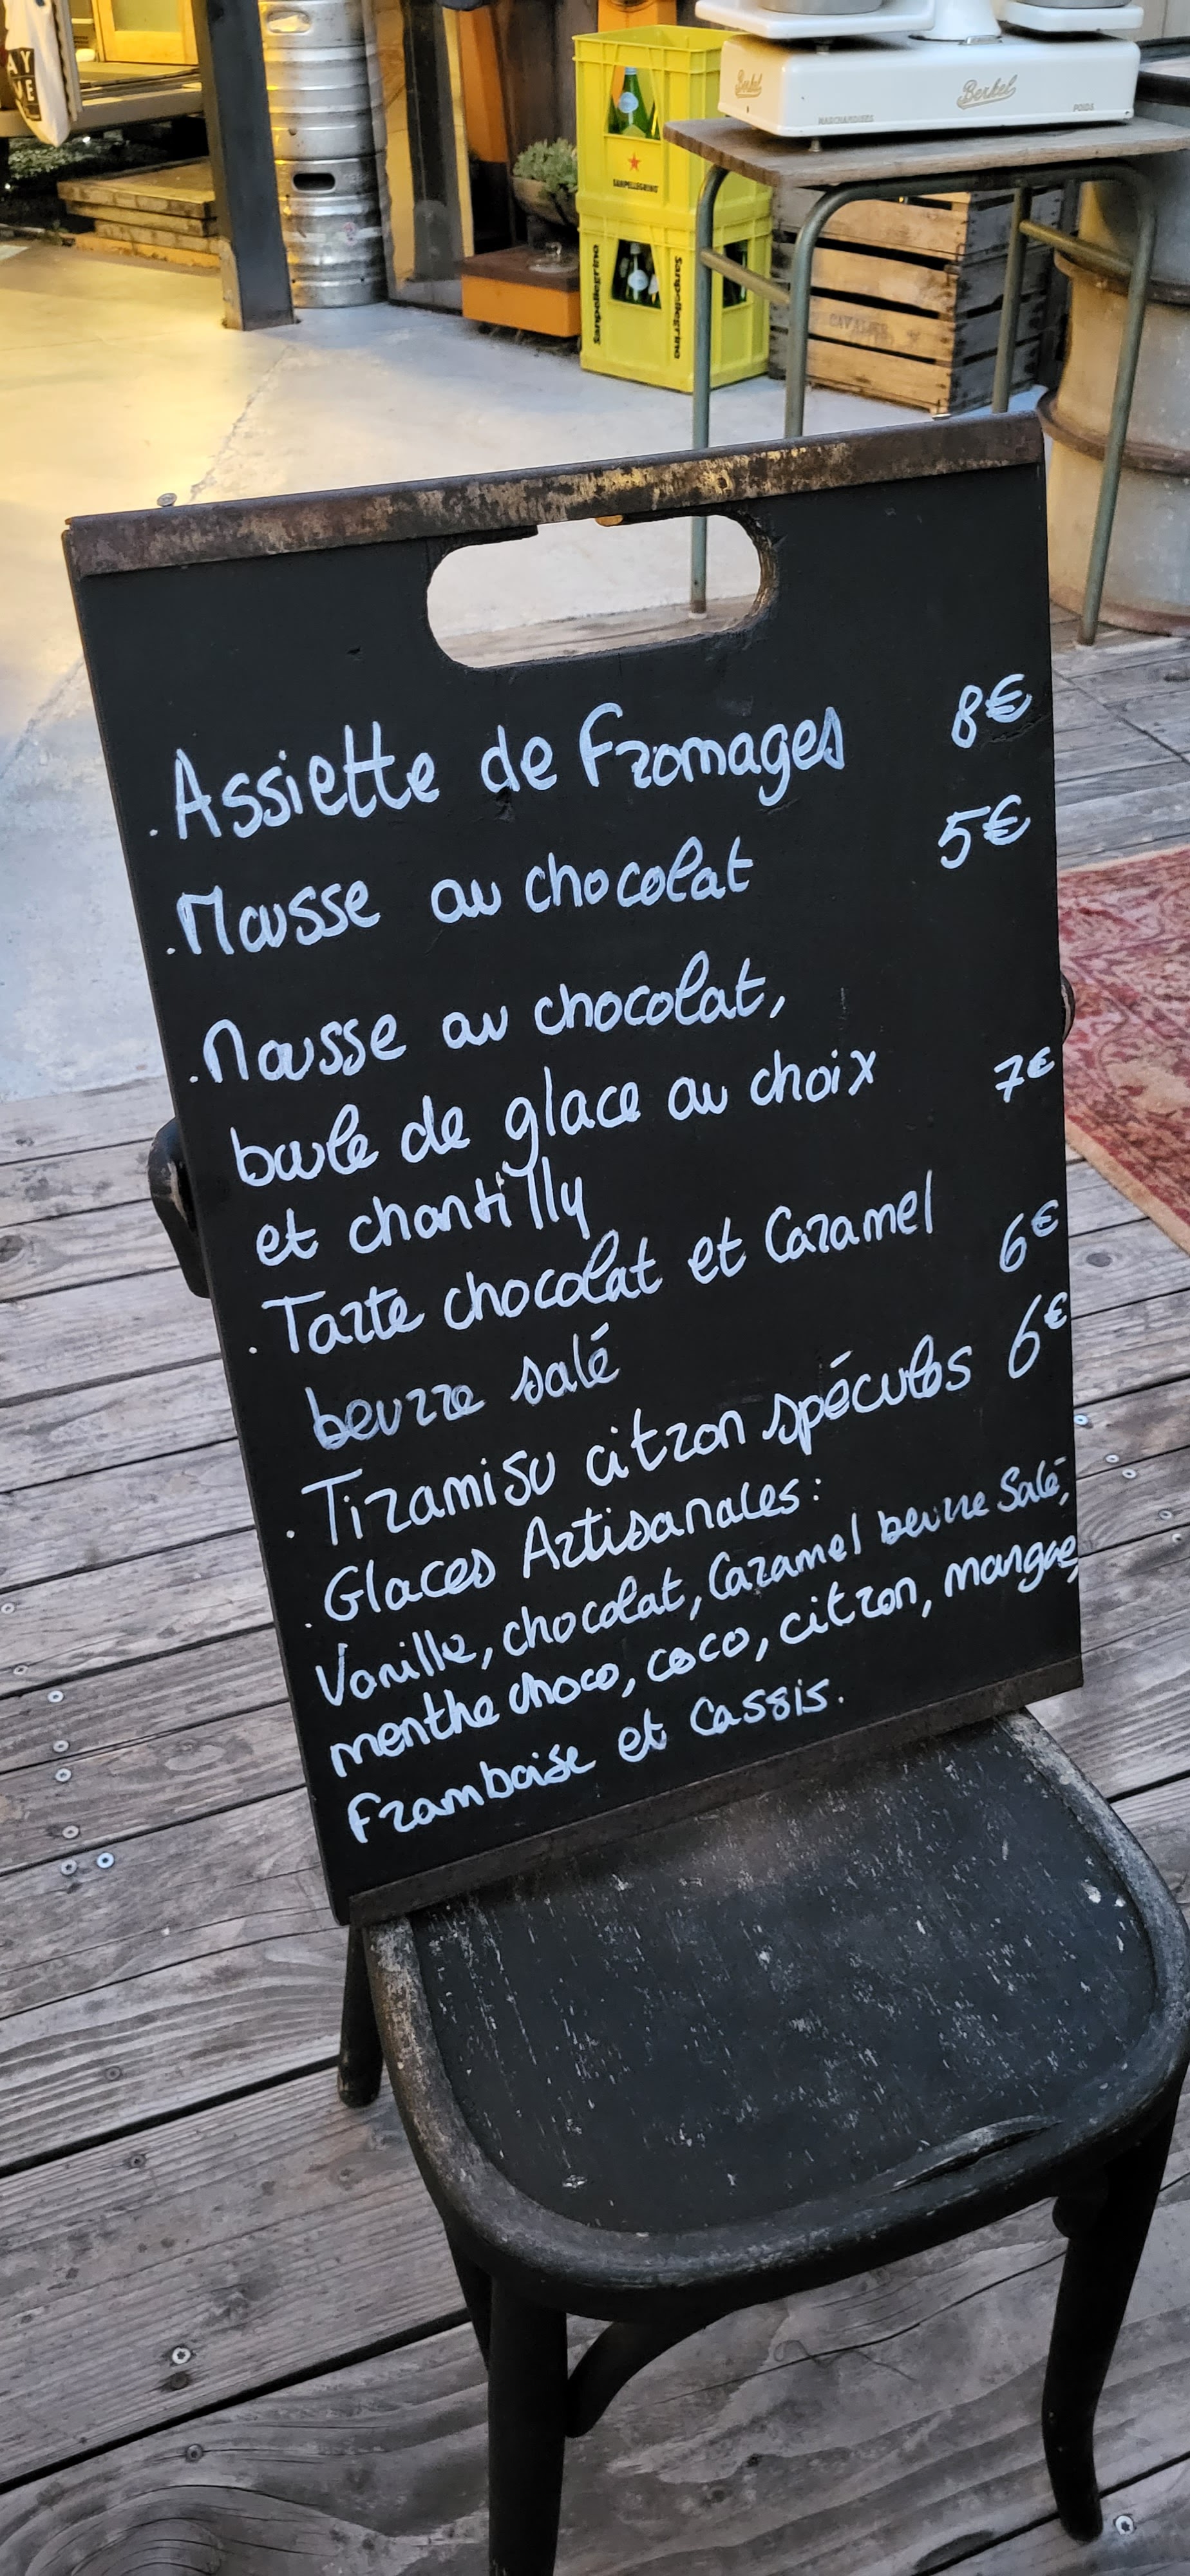 AY
VE
Berkel
Berkel
MARCHANDISES
POIDS
SANPELLEGRINO
Sanpellegrino
Sanpellegrino
CAVALIER
. Assiette de Fromages 8€
. Mousse au chocolat 5€
. Mousse au chocolat,
boule de glace au choix 7€
et chantilly
. Tarte chocolat et Caramel 6€
beurre salé
. Tiramisu citron spéculos 6€
. Glaces Artisanales :
Vanille, chocolat, Caramel beurre Salé,
menthe choco, coco, citron, mangue,
Framboise et Cassis.